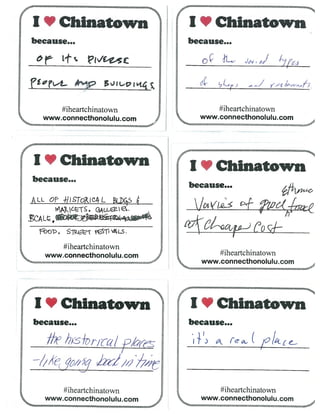 I ♥ Chinatown
because...
OF ITS DIVERSE
PEOPLE AND BUILDINGS
#iheartchinatown
www.connecthonolulu.com
I ♥ Chinatown
because...
of the varied types
of shops and restaurants
#iheartchinatown
www.connecthonolulu.com
I ♥ Chinatown
because...
ALL OF HISTORICAL BLDGS &
MARKETS. GALLERIES.
FOOD. STREET FESTIVALS.
#iheartchinatown
www.connecthonolulu.com
I ♥ Chinatown
because...
Ethnic
Varies of good food
at cheaper cost
#iheartchinatown
www.connecthonolulu.com
I ♥ Chinatown
because...
the historical places
-like going back in time
#iheartchinatown
www.connecthonolulu.com
I ♥ Chinatown
because...
it's a real place
#iheartchinatown
www.connecthonolulu.com